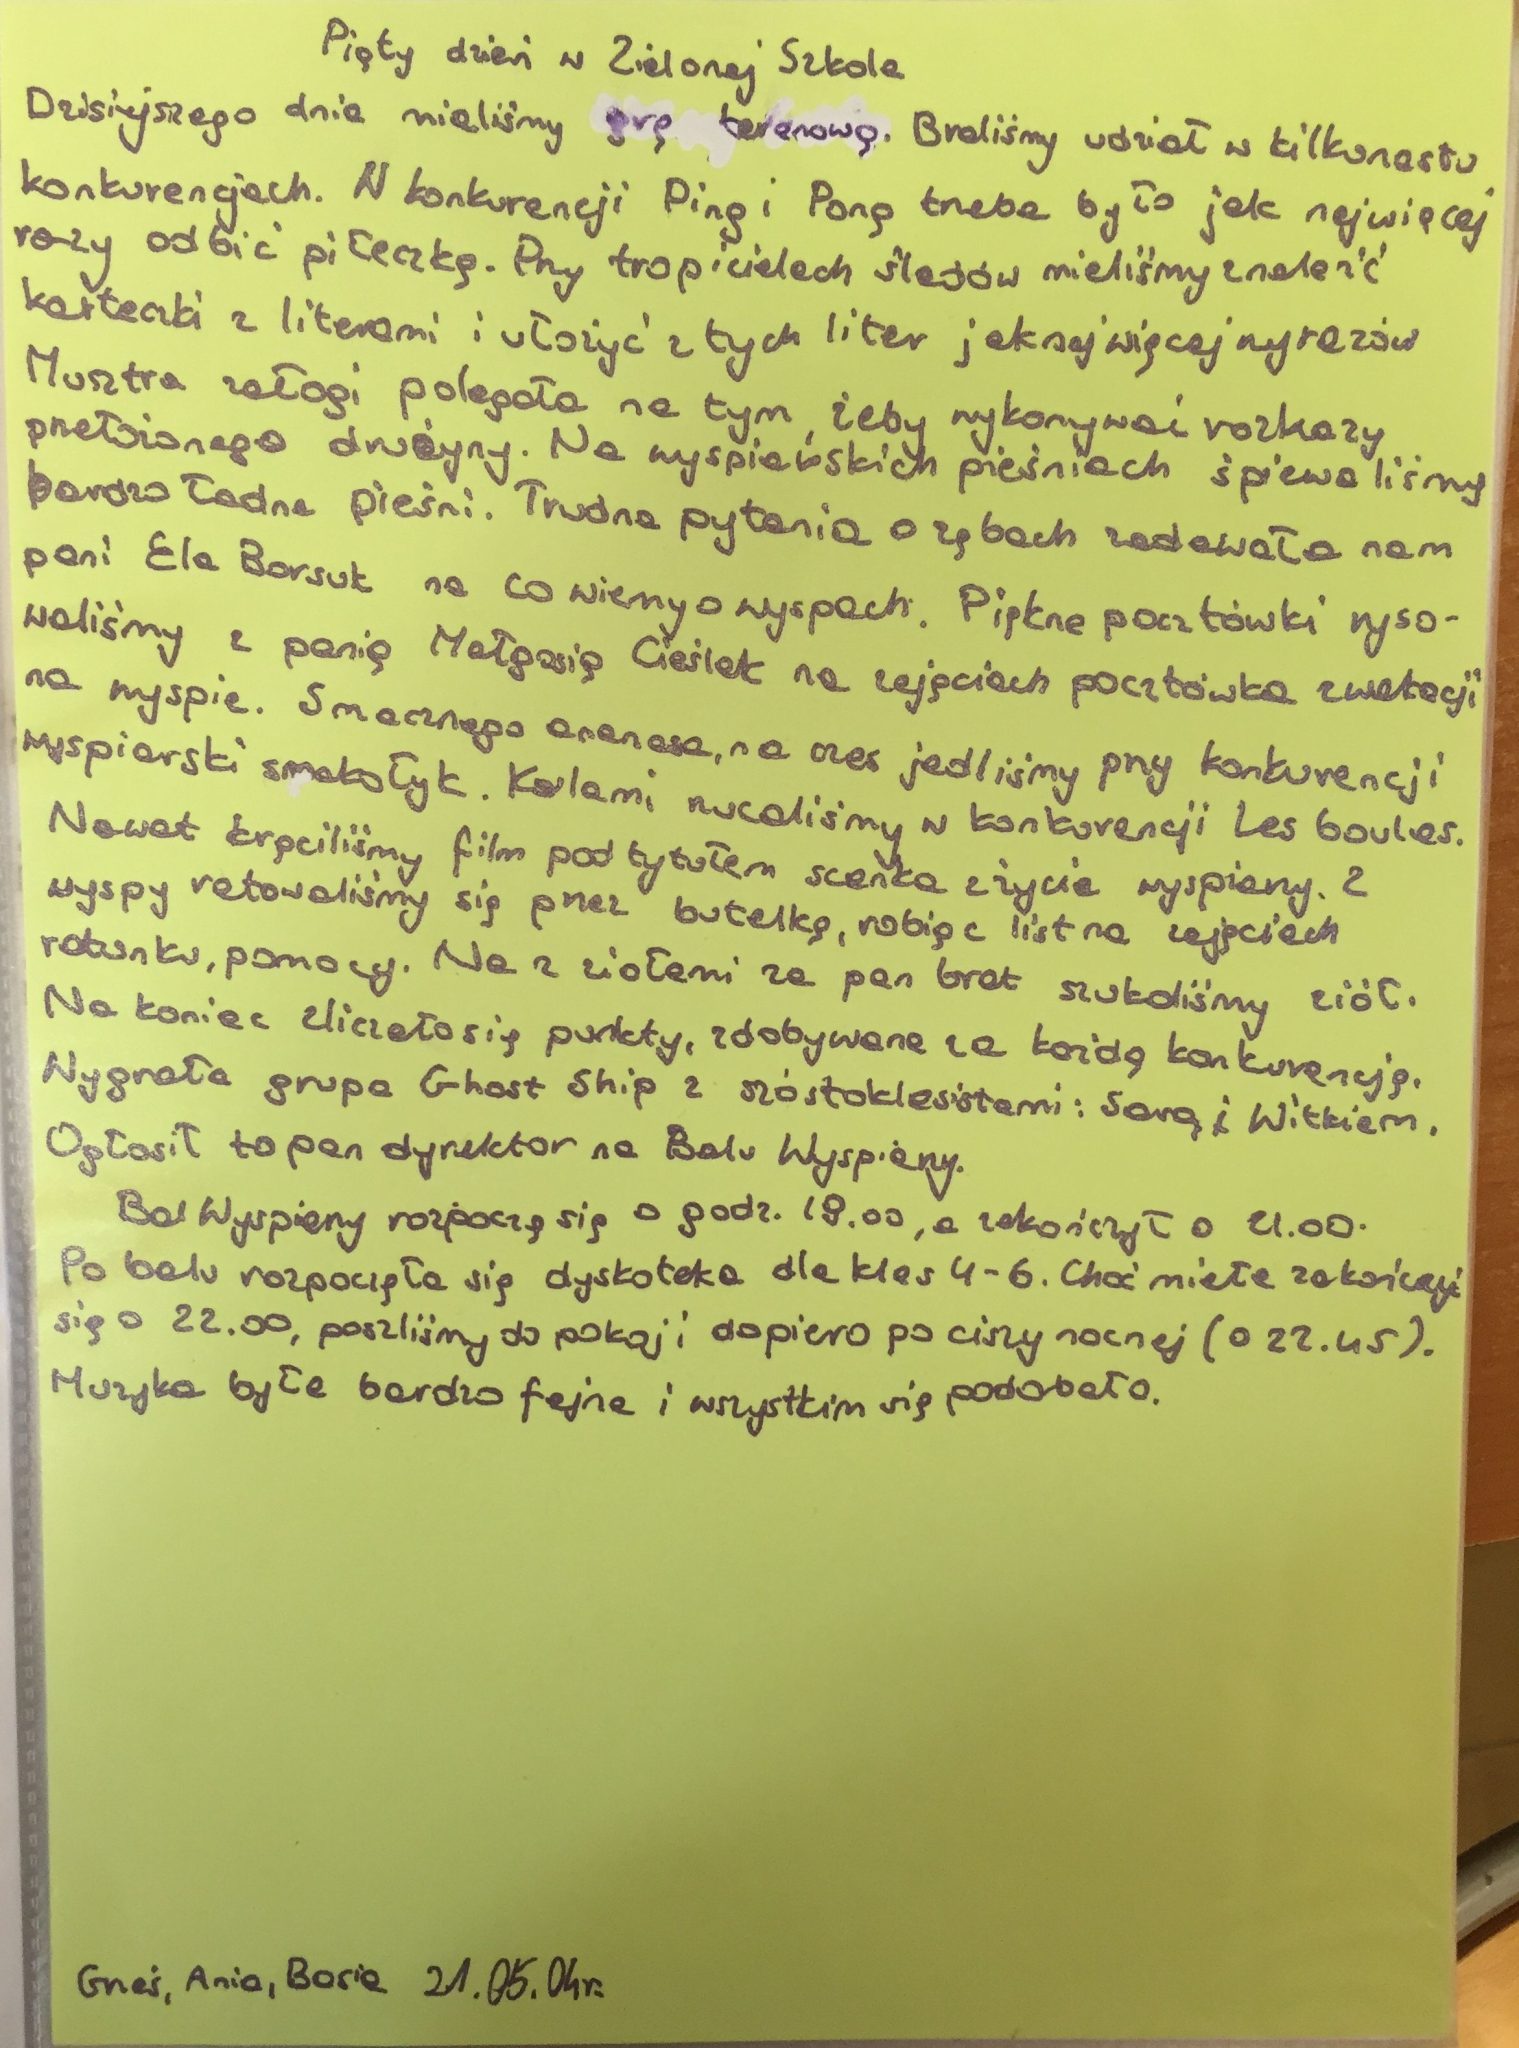 Piąty dzień w Zielonej Szkole
Dzisiejszego dnia mieliśmy grę terenową. Braliśmy udział w kilkunastu
konkurencjach. W konkurencji Ping i Pong trzeba było jak najwięcej
razy odbić piłeczkę. Przy tropicielach śladów mieliśmy znaleźć
karteczki z literami i ułożyć z tych liter jaknajwięcej wyrazów
Musztra załogi polegała na tym, żeby wykonywać rozkazy
przełożonego drużyny. Na wyspiarskich pieśniach śpiewaliśmy
bardzo ładne pieśni. Trudne pytania o zębach zadawała nam
pani Ela Borsuk na co wiemy o wyspach. Piękne pocztówki ryso-
waliśmy z panią Małgosią Cieślak na zajęciach pocztówka z wakacji
na wyspie. Smacznego ananasa, na czas jedliśmy przy konkurencji
wyspiarski smakołyk. Kulami rzucaliśmy w konkurencji Les boules.
Nawet kręciliśmy film pod tytułem scenka z życia wyspiarzy. Z
wyspy ratowaliśmy się przez butelkę, robiąc list na zajęciach
ratunku, pomocy. Na z ziołami za pan brat szukaliśmy ziół.
Na koniec zliczało się punkty, zdobywane za każdą konkurencję.
Wygrała grupa Ghost Ship z szóstoklasistami: Sarą i Witkiem.
Ogłosił to pan dyrektor na Balu Wyspiarzy.
Bal Wyspiarzy rozpoczą się o godz. 19.00, a zakończył o 21.00.
Po balu rozpoczęła się dyskoteka dla klas 4-6. Choć miała zakończyć
się o 22.00, poszliśmy do pokoj i dopiero po ciszy nocnej (o 22.45).
Muzyka była bardzo fajna i wszystkim się podobało.
Grześ, Ania, Basia 21.05.04r.